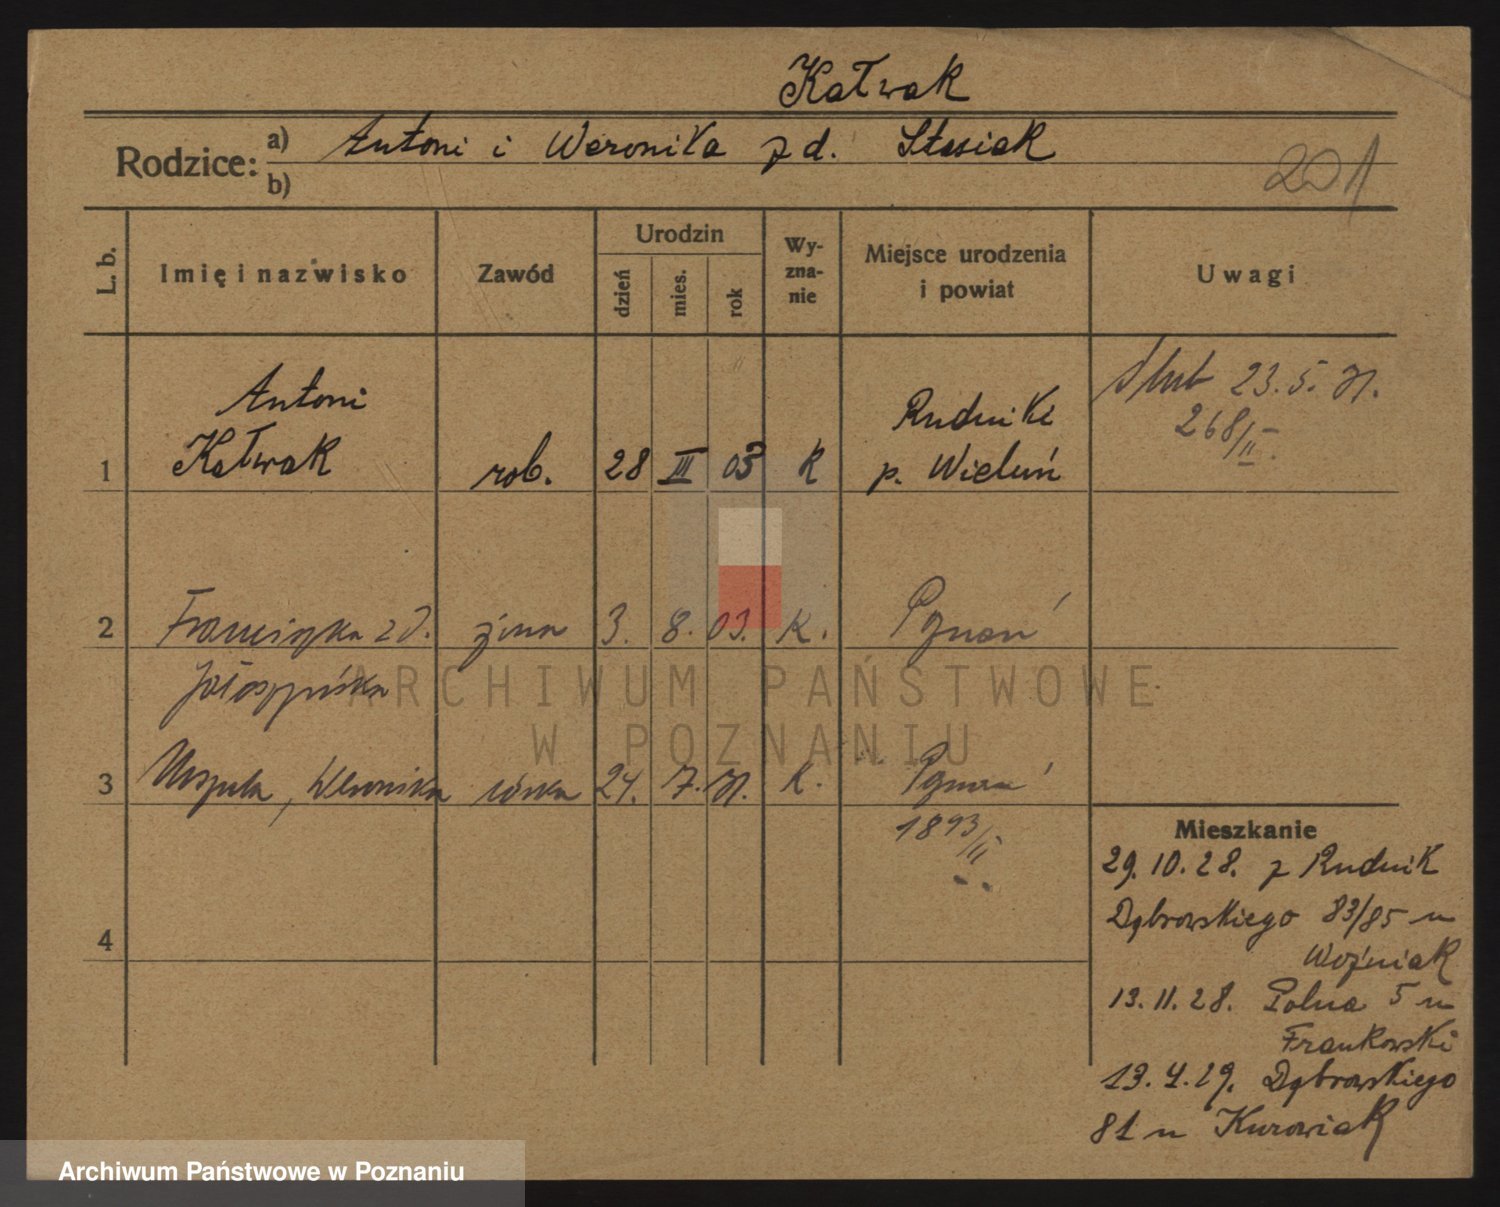 Kałwak
Rodzice: a) Antoni i Weronika z d. Stasiak
b)
201
L. b.
Imię i nazwisko
Zawód
Urodzin
dzień
mies.
rok
Wy-
zna-
nie
Miejsce urodzenia
i powiat
Uwagi
1
Antoni
Kałwak
rob.
28 III 03
K
Rudniki
p. Wieluń
Ślub 23. 5. 31.
268/II.
2
Franciszka z d.
żona
3. 8. 03.
K.
Poznań
3
Urszula, Weronika
córka
24. 7. 31.
K.
Poznań
1893/II
4
Mieszkanie
29. 10. 28. z Rudnik
Dąbrowskiego 83/85 u
Woźniak
13. 11. 28. Polna 5 u
Frankowski
13. 4. 29. Dąbrowskiego
81 u Kurowiak
ARCHIWUM PAŃSTWOWE
W POZNANIU
Archiwum Państwowe w Poznaniu